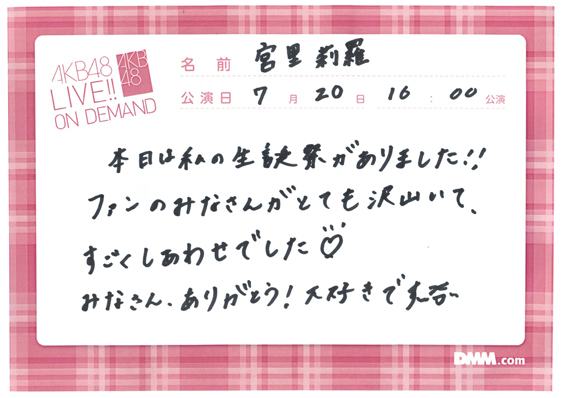 AKB48
LIVE!!
ON DEMAND
AKB
48
名前 宮里莉羅
公演日 7月20日 16:00公演
本日は私の生誕祭がありました!!
ファンのみなさんがとても沢山いて、
すごくしあわせでした♡
みなさん、ありがとう!大好きです
DMM.com